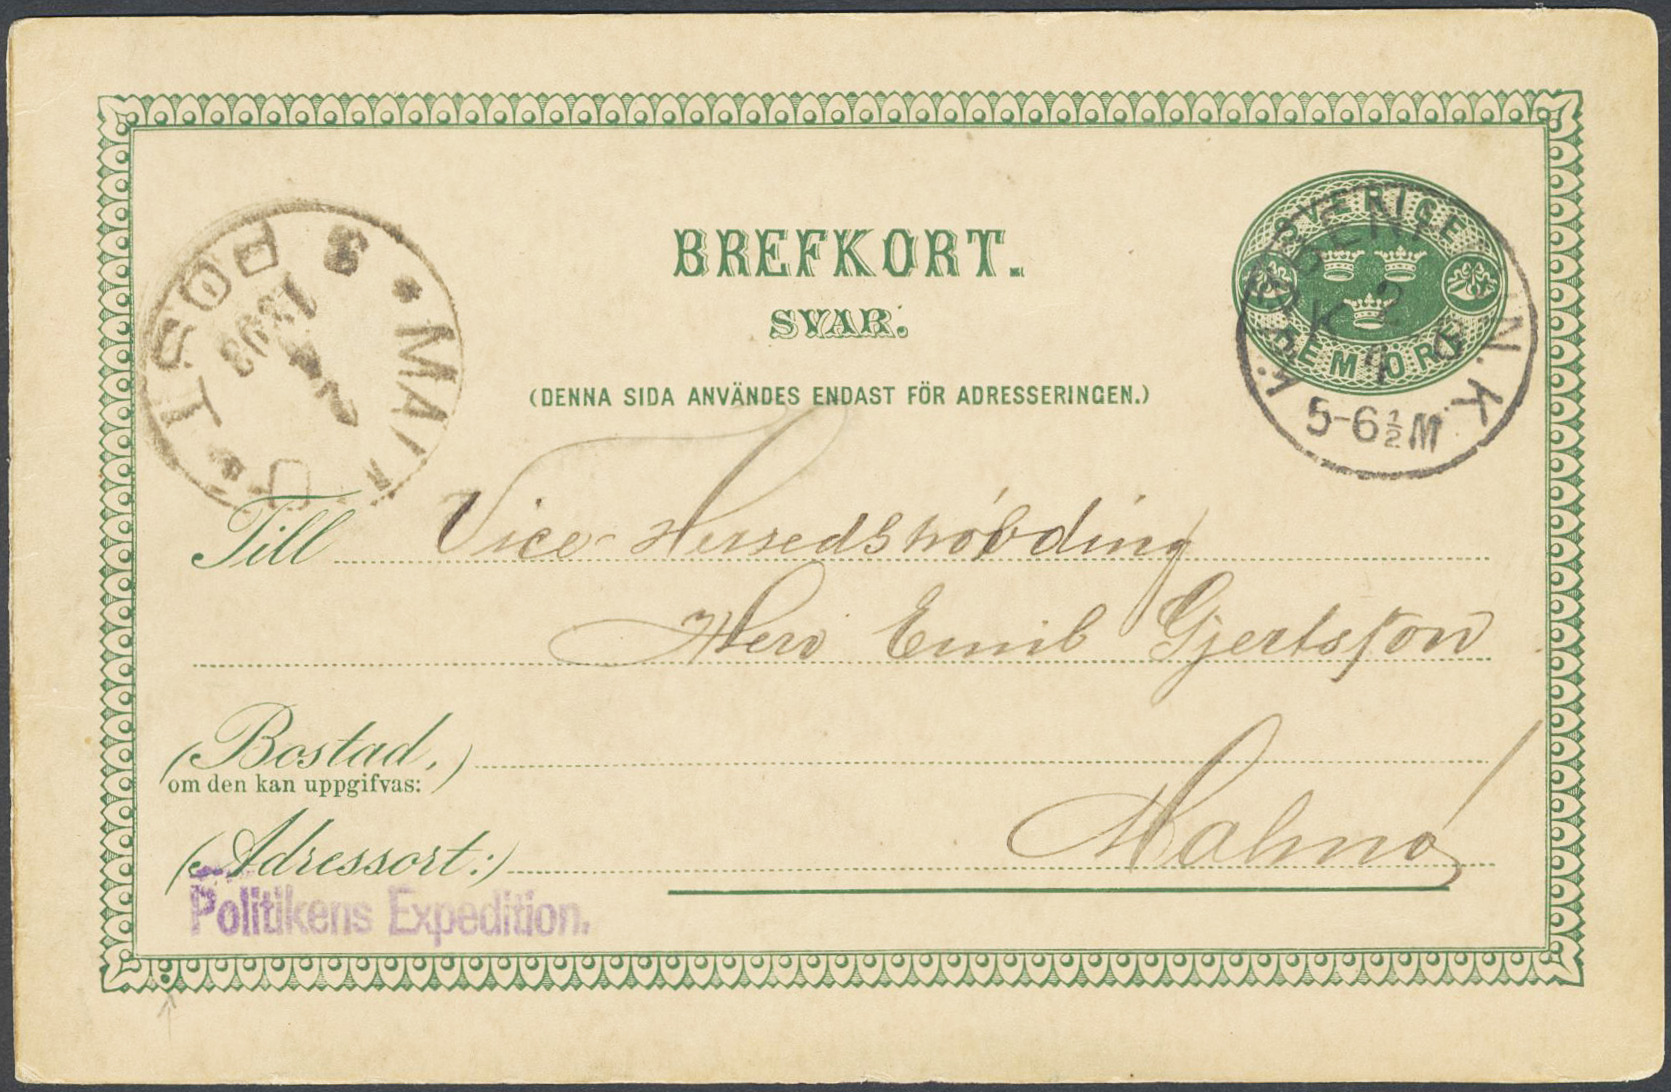 BREFKORT.
SVAR.
(DENNA SIDA ANVÄNDES ENDAST FÖR ADRESSERINGEN.)
SVERIGE
FEM ÖRE
5-6½M
POST
Till Vice-Herredshöbding
Herr Emil Gjertsson
(Bostad,)
om den kan uppgifvas:
(Adressort:) Malmö
Politikens Expedition.